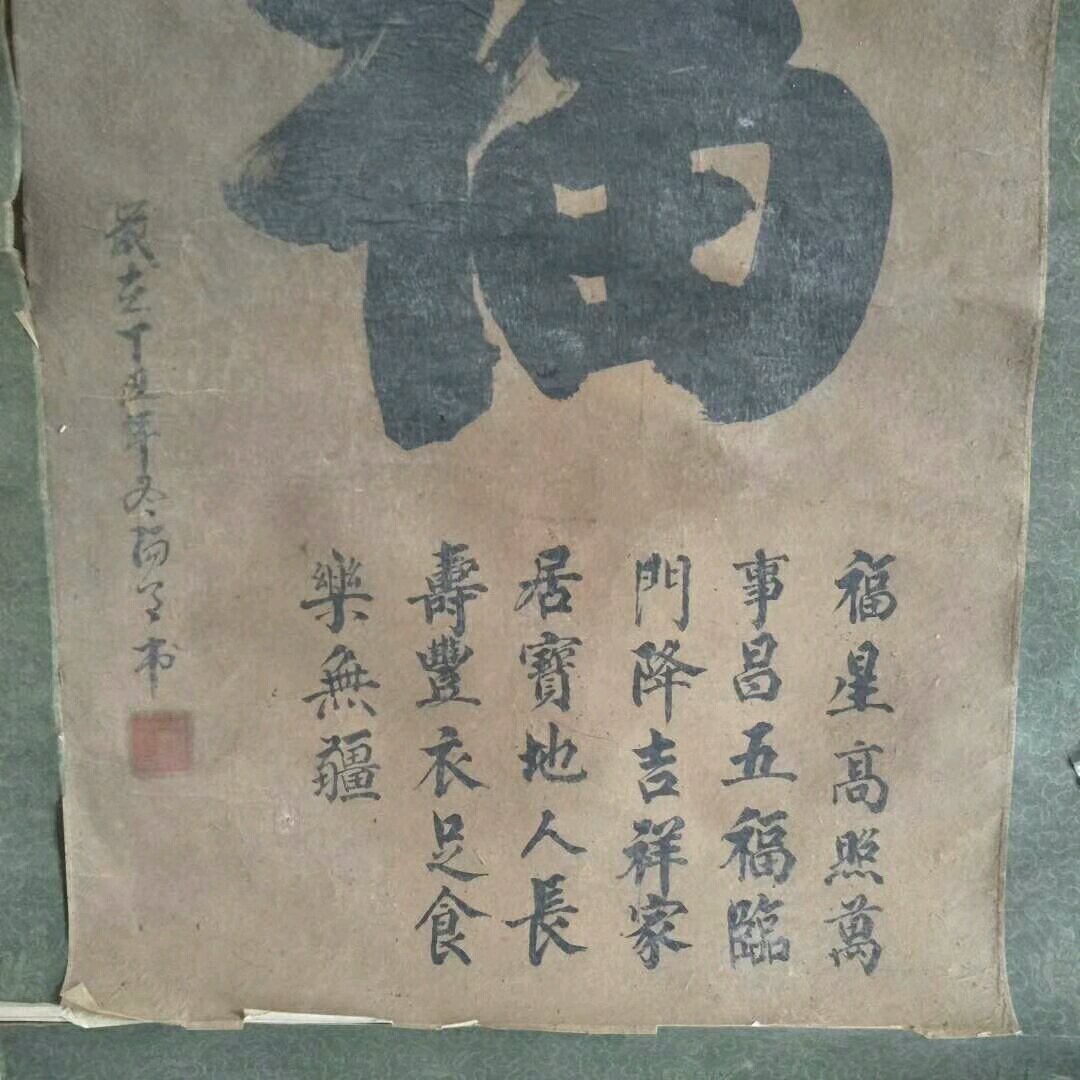 福
福星高照萬
事昌五福臨
門降吉祥家
居寶地人長
壽豐衣足食
樂無疆
歲在丁丑年冬陽